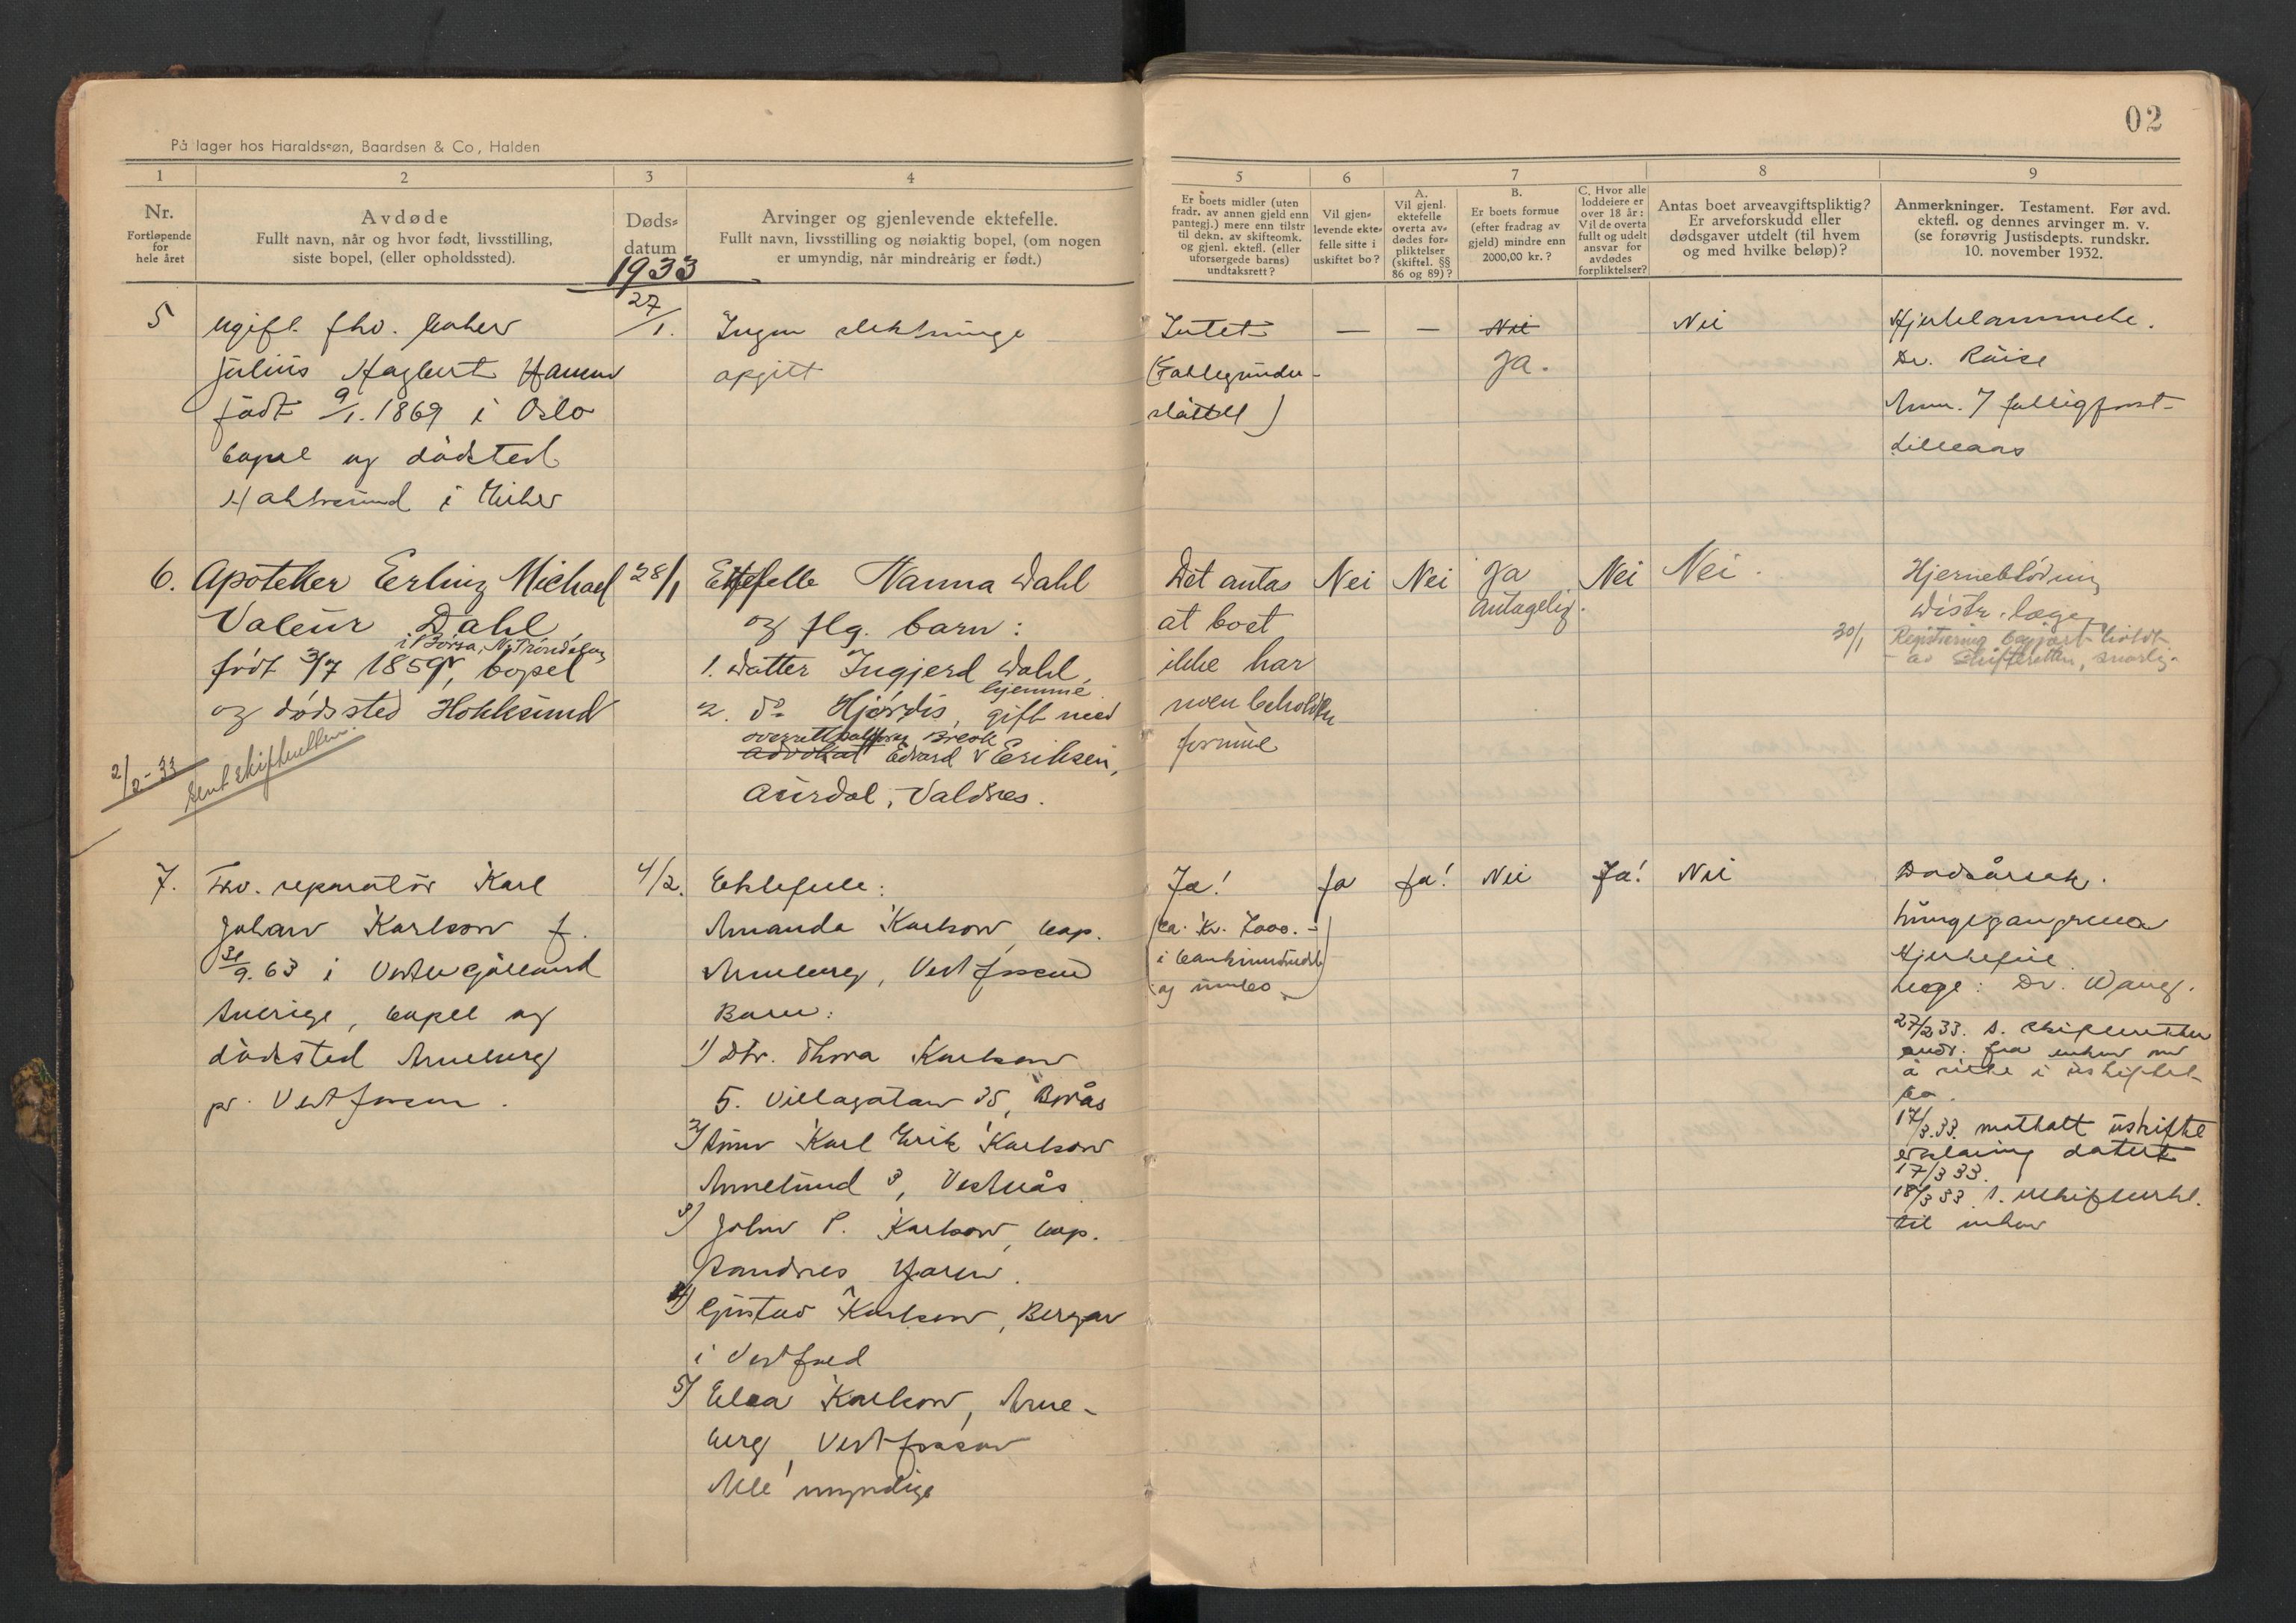 02
På lager hos Haraldssøn, Baardsen & Co, Halden
1
2
3
4
5
6
7
8
9
Nr.
Fortløpende
for
hele året
Avdøde
Fullt navn, når og hvor født, livsstilling,
siste bopel, (eller opholdssted).
Døds-
datum
1933
Arvinger og gjenlevende ektefelle.
Fullt navn, livsstilling og nøiaktig bopel, (om nogen
er umyndig, når mindreårig er født.)
Er boets midler (uten
fradr. av annen gjeld enn
pantegj.) mere enn tilstr
til dekn. av skifteomk.
og gjenl. ektefl. (eller
uforsørgede barns)
undtaksrett?
Vil gjen-
levende ekte-
felle sitte i
uskiftet bo?
A.
Vil gjenl.
ektefelle
overta av-
dødes for-
pliktelser
(skiftel. §§
86 og 89)?
B.
Er boets formue
(efter fradrag av
gjeld) mindre enn
2000,00 kr.?
C. Hvor alle
loddeiere er
over 18 år:
Vil de overta
fullt og udelt
ansvar for
avdødes
forpliktelser?
Antas boet arveavgiftspliktig?
Er arveforskudd eller
dødsgaver utdelt (til hvem
og med hvilke beløp)?
Anmerkninger. Testament. Før avd.
ektefl. og dennes arvinger m. v.
(se forøvrig Justisdepts. rundskr.
10. november 1932.
5
ugift fhv.
Julius Hagbert Hansen
født 9/1. 1869 i Oslo
bopel og dødsted
i Eiker
27/1.
Ingen slektninge
opgitt
Intet
— — Nei
Ja.
Nei
Dr. Riise
6.
Apoteker Erling Michael
Valeur Dahl,
i Børsa, N. Trøndelag
født 3/7 1859, bopel
og dødssted Hokksund
2/2-33
sent skifteretten.
28/1
Ektefelle Nanna Dahl
og flg. barn:
1. Datter Ingjerd Dahl,
hjemme
2. do Hjørdis, gift med
Advokat Edvard Eriksen,
Aurdal, Valdres.
Det antas
at boet
ikke har
noen beholden
formue
Nei
Nei
Ja
antagelig.
Nei
Nei.
Hjerneblødning
Distr. læge
30/1
Registrering begjært holdt
av skifteretten, snarlig.
7.
Fhv. reparatør Karl
Johan Karlson f.
9. 63 i
Sverige, bopel og
dødsted Arneberg
pr. Vestfossen.
4/2.
Ektefelle:
Amanda Karlson, bop.
Arneberg, Vestfossen
Barn:
1) Dtr. Thora Karlson
5. Villagatan 35, Borås
2) Sønn Karl Erik Karlson
Annelund 3, Vesterås
3) John P. Karlson, bop.
Sandnes Jæren.
4) Gustav Karlson, Bergan
i Vestfold
5) Elsa Karlson, Arne-
berg, Vestfossen
Alle myndige
Ja!
(ca. Kr. 7000.-
i bankinnskudd
og innbo)
Ja
Ja!
Nei
Ja!
Nei
Dødsårsak.
Lungegangrena
Hjertefeil
Læge: Dr. Wang.
27/2 33. s. skifteretten
andr. fra enken om
å sitte i uskiftet
bo.
17/3.33. mottatt uskifte
erklæring datert
17/3 33.
18/3 33 s.
til enken